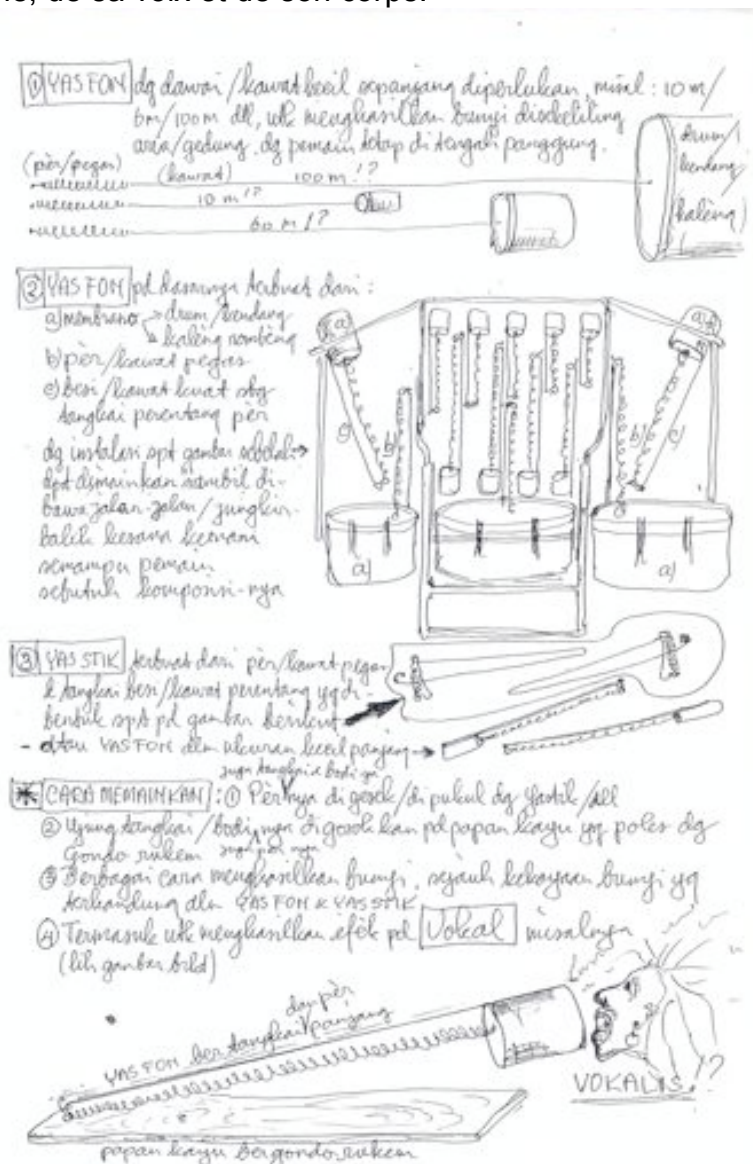 de sa voix et de son corps.
① YASFON dg dawai / kawat kecil sepanjang diperlukan, misal : 10 m /
6m / 100 m dll, utk menghasilkan bunyi disekeliling
area / gedung. dg pemain tetap di tengah panggung.
(pèr/pegas) (kawat) 100 m !?
10 m !?
60 m !?
drum /
kendang
(kalèng)
② YASFON pd dasarnya terbuat dari :
a) membrano → drum / kendang
kalèng rombèng
b) pèr / kawat pegas
c) besi / kawat kuat sbg
tangkai perentang pèr
dg instalasi spt gambar sebelah →
dpt dimainkan sambil di-
bawa jalan-jalan / jungkir-
balik kesana kemari
semampu pemain
sebutuh komposisi-nya
a) a)
c) b) b) c)
a) a)
③ YAS STIK terbuat dari pèr / kawat pegas
& tangkai besi / kawat perentang yg di-
bentuk spt pd gambar berikut
- atau YASFON dlm ukuran kecil panjang →
juga tangkai & bodi nya
* CARA MEMAINKAN : ① Pèr nya di gesek / di pukul dg yastik / dll
② Ujung tangkai / bodi nya di gosok kan pd papan kayu yg poles dg
Gondo rukem juga pèr nya
③ Berbagai cara menghasilkan bunyi, sejauh kekayaan bunyi yg
terkandung dlm YASFON & YAS STIK
④ Termasuk utk menghasilkan efèk pd Vokal misalnya
(lih gambar)
dan pèr
YASFON ber tangkai panjang
VOKALIS !?
papan kayu bergondorukem